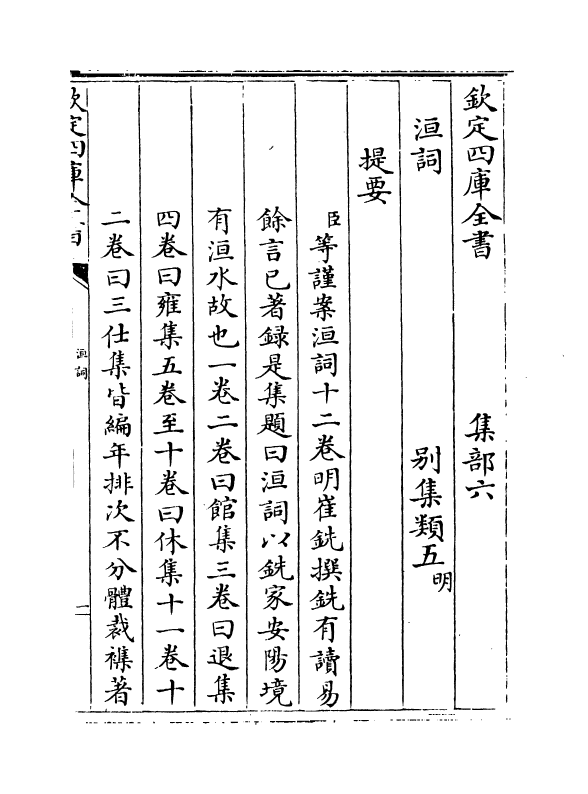 欽定四庫全書 集部六
洹詞 别集類五明
提要
臣等謹案洹詞十二卷明崔銑撰銑有讀易
餘言已著録是集題曰洹詞以銑家安陽境
有洹水故也一卷二卷曰館集三卷曰退集
四卷曰雍集五卷至十卷曰休集十一卷十
二卷曰三仕集皆編年排次不分體裁襍著
欽定四庫全書
洹詞
一